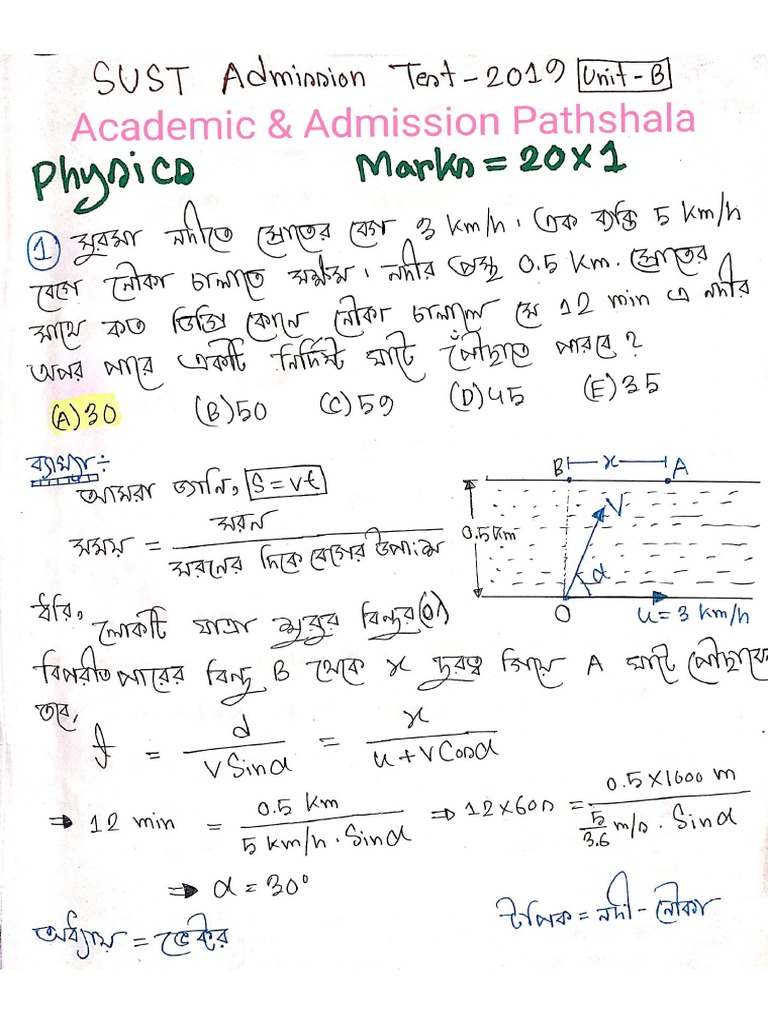 SUST Admission Test-2019 Unit-B
Academic & Admission Pathshala
Physics Marks = 20×1
① সুরমা নদীতে স্রোতের বেগ 3 km/h. এক ব্যক্তি 5 km/h
বেগে নৌকা চালাতে সক্ষম। নদীর প্রস্থ 0.5 km. স্রোতের
সাথে কত ডিগ্রি কোনে নৌকা চালালে সে 12 min এ নদীর
অপর পারে একটি নির্দিষ্ট ঘাটে পৌঁছাতে পারবে?
(A) 30 (B) 50 (C) 59 (D) 45 (E) 35
ব্যাখ্যাঃ
আমরা জানি, S=vt
সময় = সরন / সরনের দিকে বেগের উপাংশ
B x A
0.5 km
V
α
O u=3 km/h
ধরি, লোকটি যাত্রা শুরুর বিন্দুর (O)
বিপরীত পারের বিন্দু B থেকে x দূরত্ব গিয়ে A ঘাটে পৌঁছাবে
তবে,
t = d / V Sinα = x / u+V Cosα
⇒ 12 min = 0.5 km / 5 km/h · Sinα ⇒ 12×60s = 0.5×1000 m / 5/3.6 m/s · Sinα
⇒ α = 30°
অধ্যায় = ভেক্টর টপিক = নদী-নৌকা